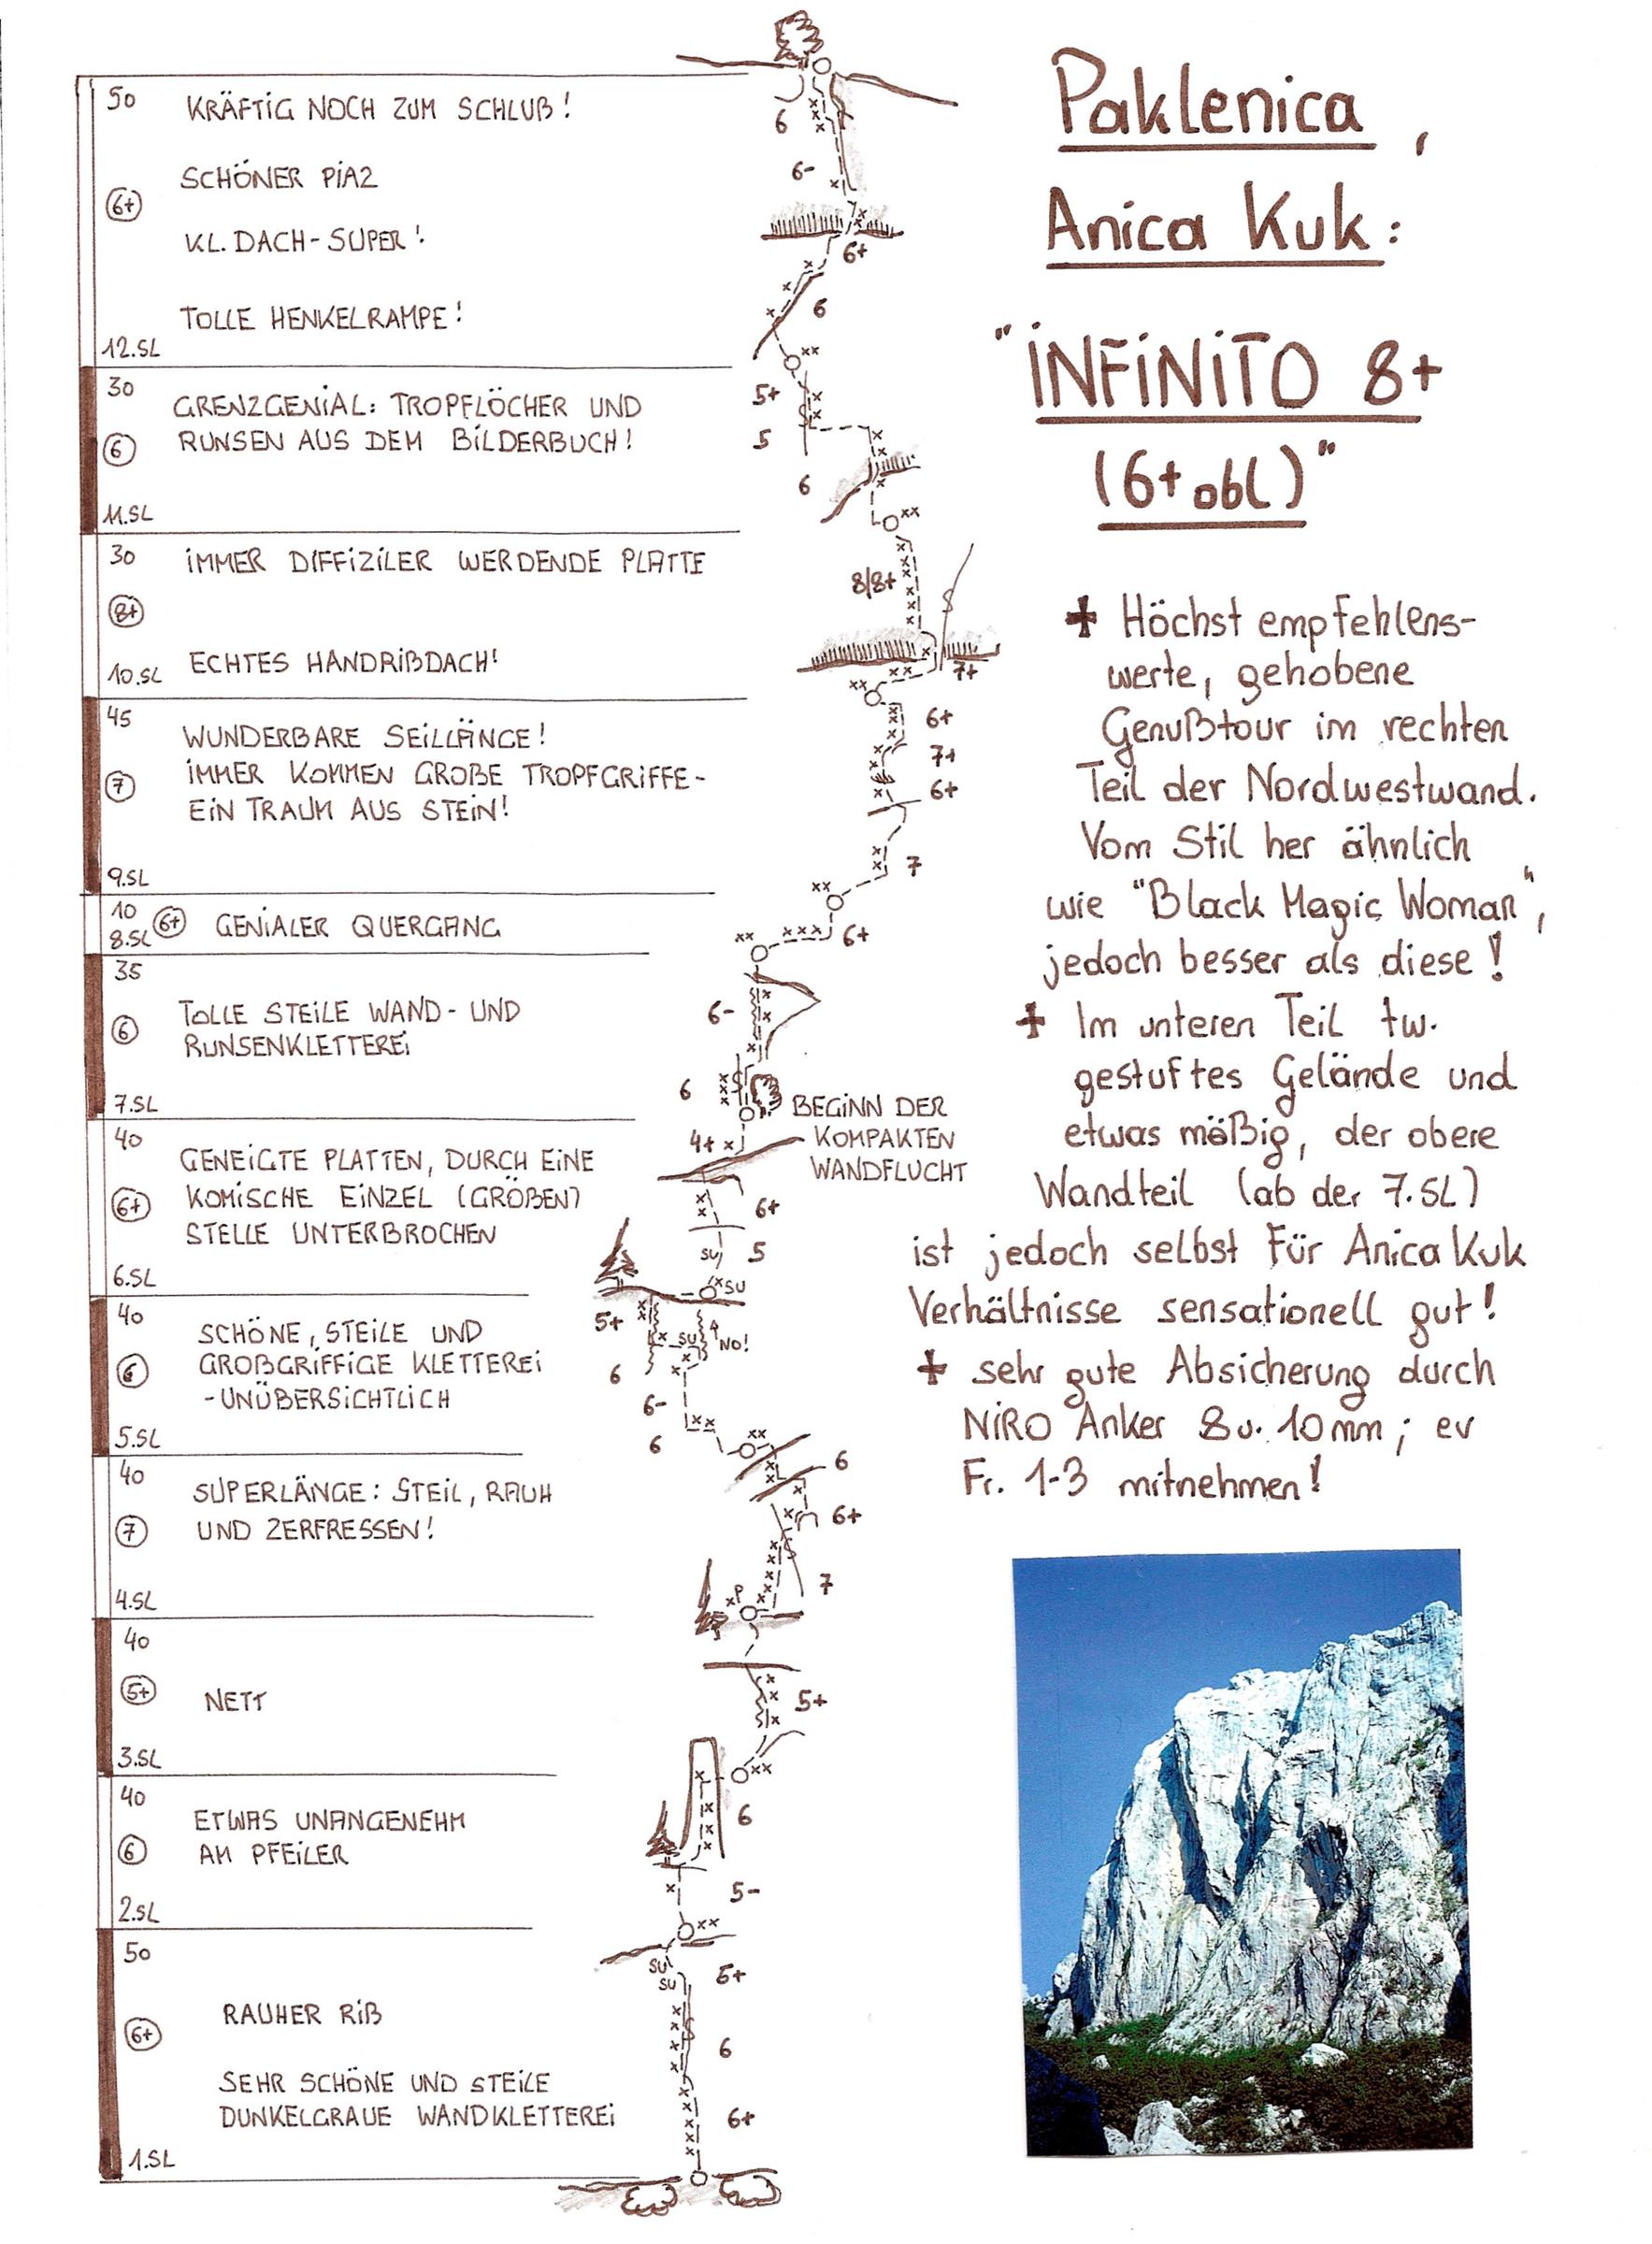 Paklenica,
Anica Kuk:
"INFINITO 8+
(6+ obl)"
+ Höchst empfehlens-
werte, gehobene
Genußtour im rechten
Teil der Nordwestwand.
Vom Stil her ähnlich
wie "Black Magic Woman",
jedoch besser als diese!
+ Im unteren Teil tw.
gestuftes Gelände und
etwas mäßig, der obere
Wandteil (ab der 7.SL)
ist jedoch selbst für Anica Kuk
Verhältnisse sensationell gut!
+ sehr gute Absicherung durch
NIRO Anker 8 u. 10mm; ev
Fr. 1-3 mitnehmen!
50
KRÄFTIG NOCH ZUM SCHLUß!
SCHÖNER PIAZ
6+
KL. DACH-SUPER!
TOLLE HENKELRAMPE!
12.SL
6
6-
6+
6
xx
30
GRENZGENIAL: TROPFLÖCHER UND
6
RUNSEN AUS DEM BILDERBUCH!
11.SL
5+
5
6
xx
30
IMMER DIFFIZILER WERDENDE PLATTE
8+
ECHTES HANDRIßDACH!
10.SL
8/8+
7+
xx
45
WUNDERBARE SEILLÄNGE!
7
IMMER KOMMEN GROßE TROPFGRIFFE-
EIN TRAUM AUS STEIN!
9.SL
6+
7+
6+
7
xx
10
8.SL
6+
GENIALER QUERGANG
6+
xx
35
TOLLE STEILE WAND- UND
6
RUNSENKLETTEREI
7.SL
6-
6
BEGINN DER
KOMPAKTEN
WANDFLUCHT
40
GENEIGTE PLATTEN, DURCH EINE
6+
KOMISCHE EINZEL (GRÖßEN)
STELLE UNTERBROCHEN
6.SL
4+ x
6+
SU
5
xSU
40
SCHÖNE, STEILE UND
6
GROßGRIFFIGE KLETTEREI
-UNÜBERSICHTLICH
5.SL
5+
SU
NO!
6
6-
6
xx
40
SUPERLÄNGE: STEIL, RAUH
7
UND ZERFRESSEN!
4.SL
6
6+
7
xP
40
5+
NETT
3.SL
5+
xx
40
ETWAS UNANGENEHM
6
AM PFEILER
2.SL
6
5-
xx
50
RAUHER RIß
6+
SEHR SCHÖNE UND STEILE
DUNKELGRAUE WANDKLETTEREI
1.SL
SU
SU
5+
6
6+